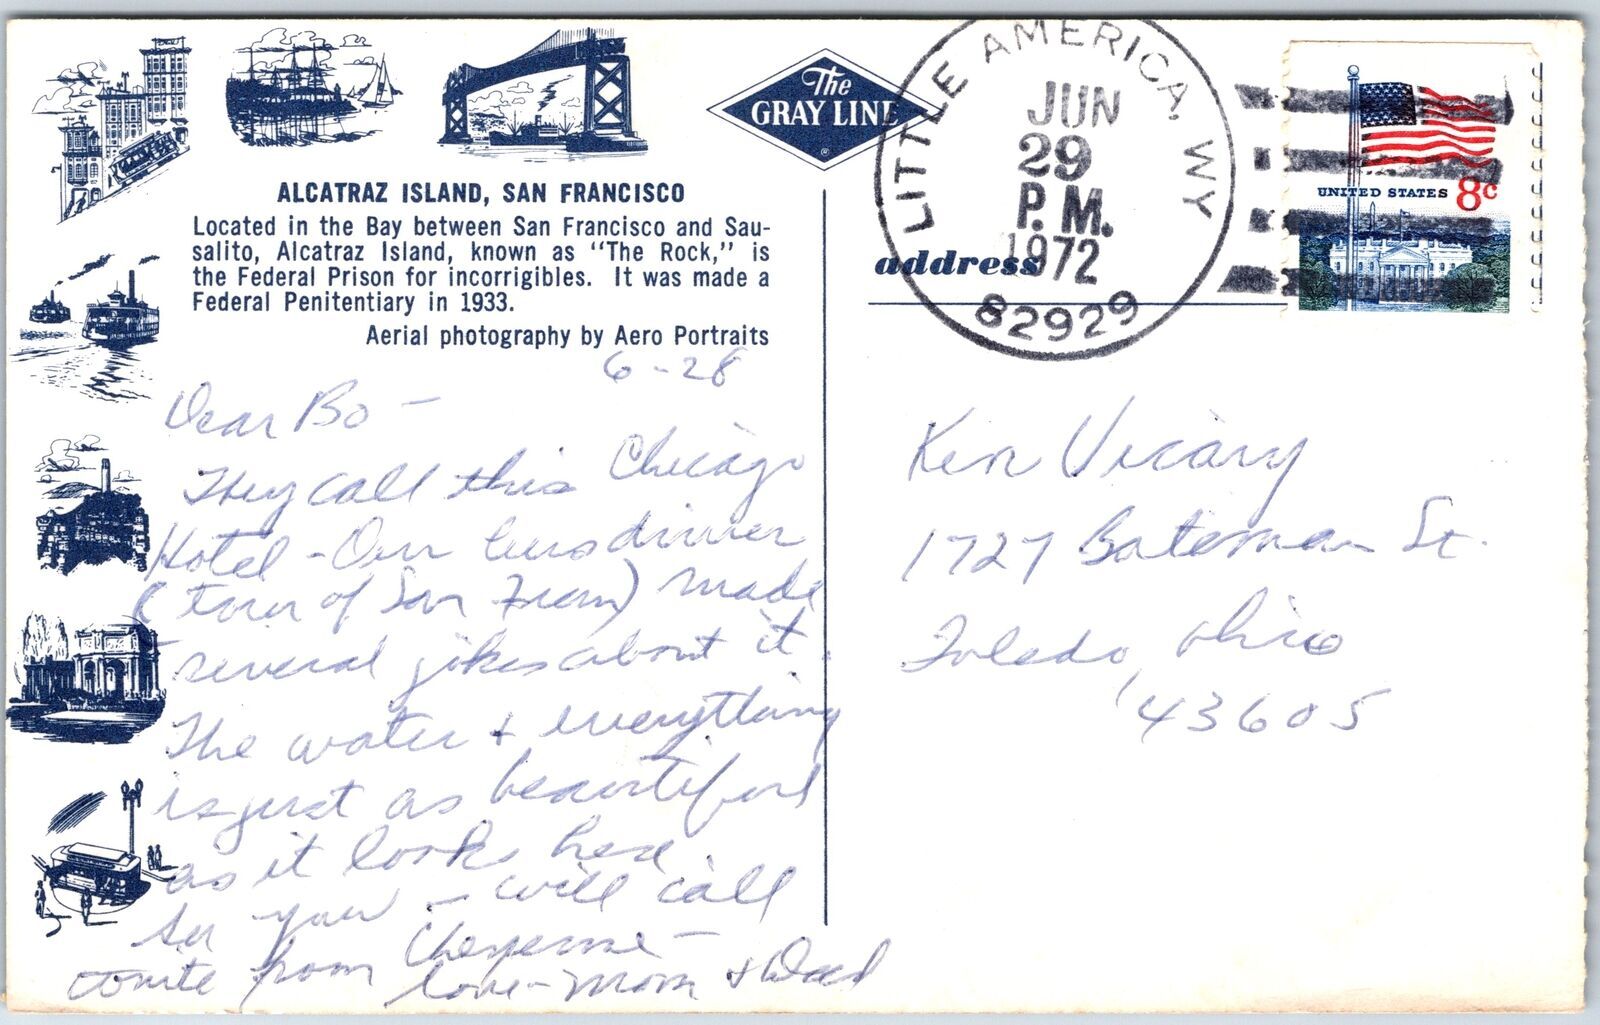 The
GRAY LINE
®
LITTLE AMERICA, WY
JUN
29
P.M.
1972
82929
UNITED STATES 8c
ALCATRAZ ISLAND, SAN FRANCISCO
Located in the Bay between San Francisco and Sau-
salito, Alcatraz Island, known as "The Rock," is
the Federal Prison for incorrigibles. It was made a
Federal Penitentiary in 1933.
Aerial photography by Aero Portraits
address
6-28
Dear Bo -
They call this Chicago
Hotel - Our bus dinner
(tour of San Fran) made
several jokes about it.
The water + everything
is just as beautiful
as it looks here
to you - will call
tonite from Cheyenne -
Love - Mom + Dad
Ken Vicary
1727 Bateman St.
Toledo, Ohio
43605